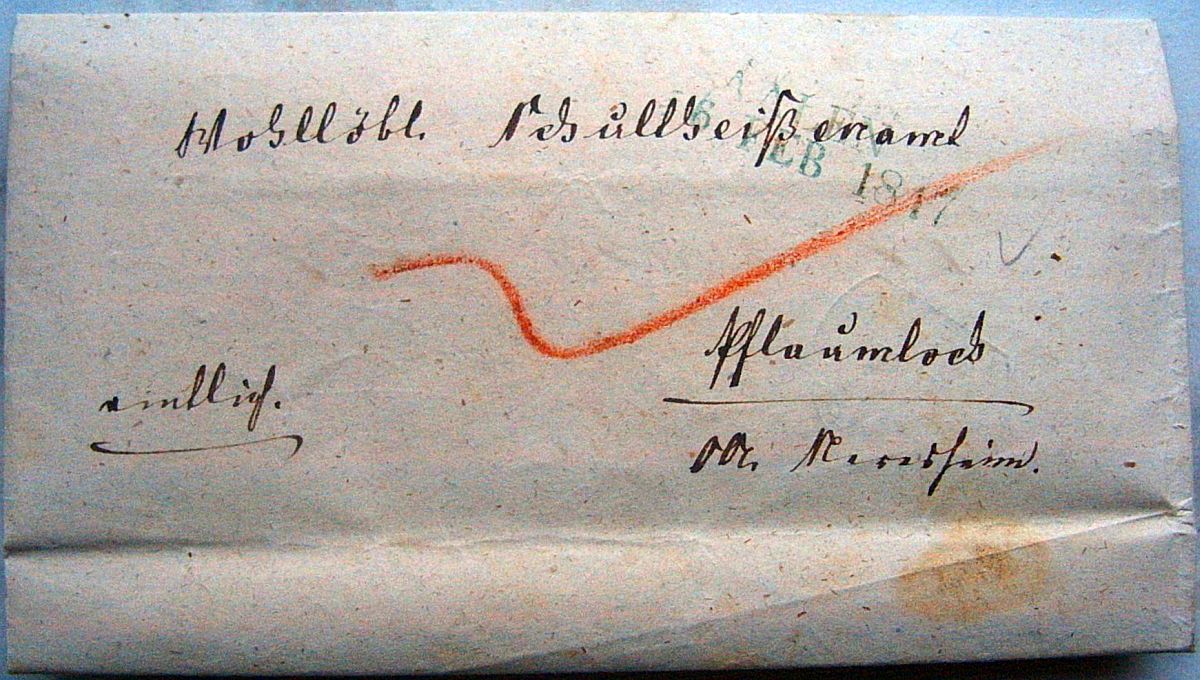 Wohllöbl. Schultheißenamt
AALEN
16 FEB 1847
Pflaumloch
amtlich.
OA. Neresheim.